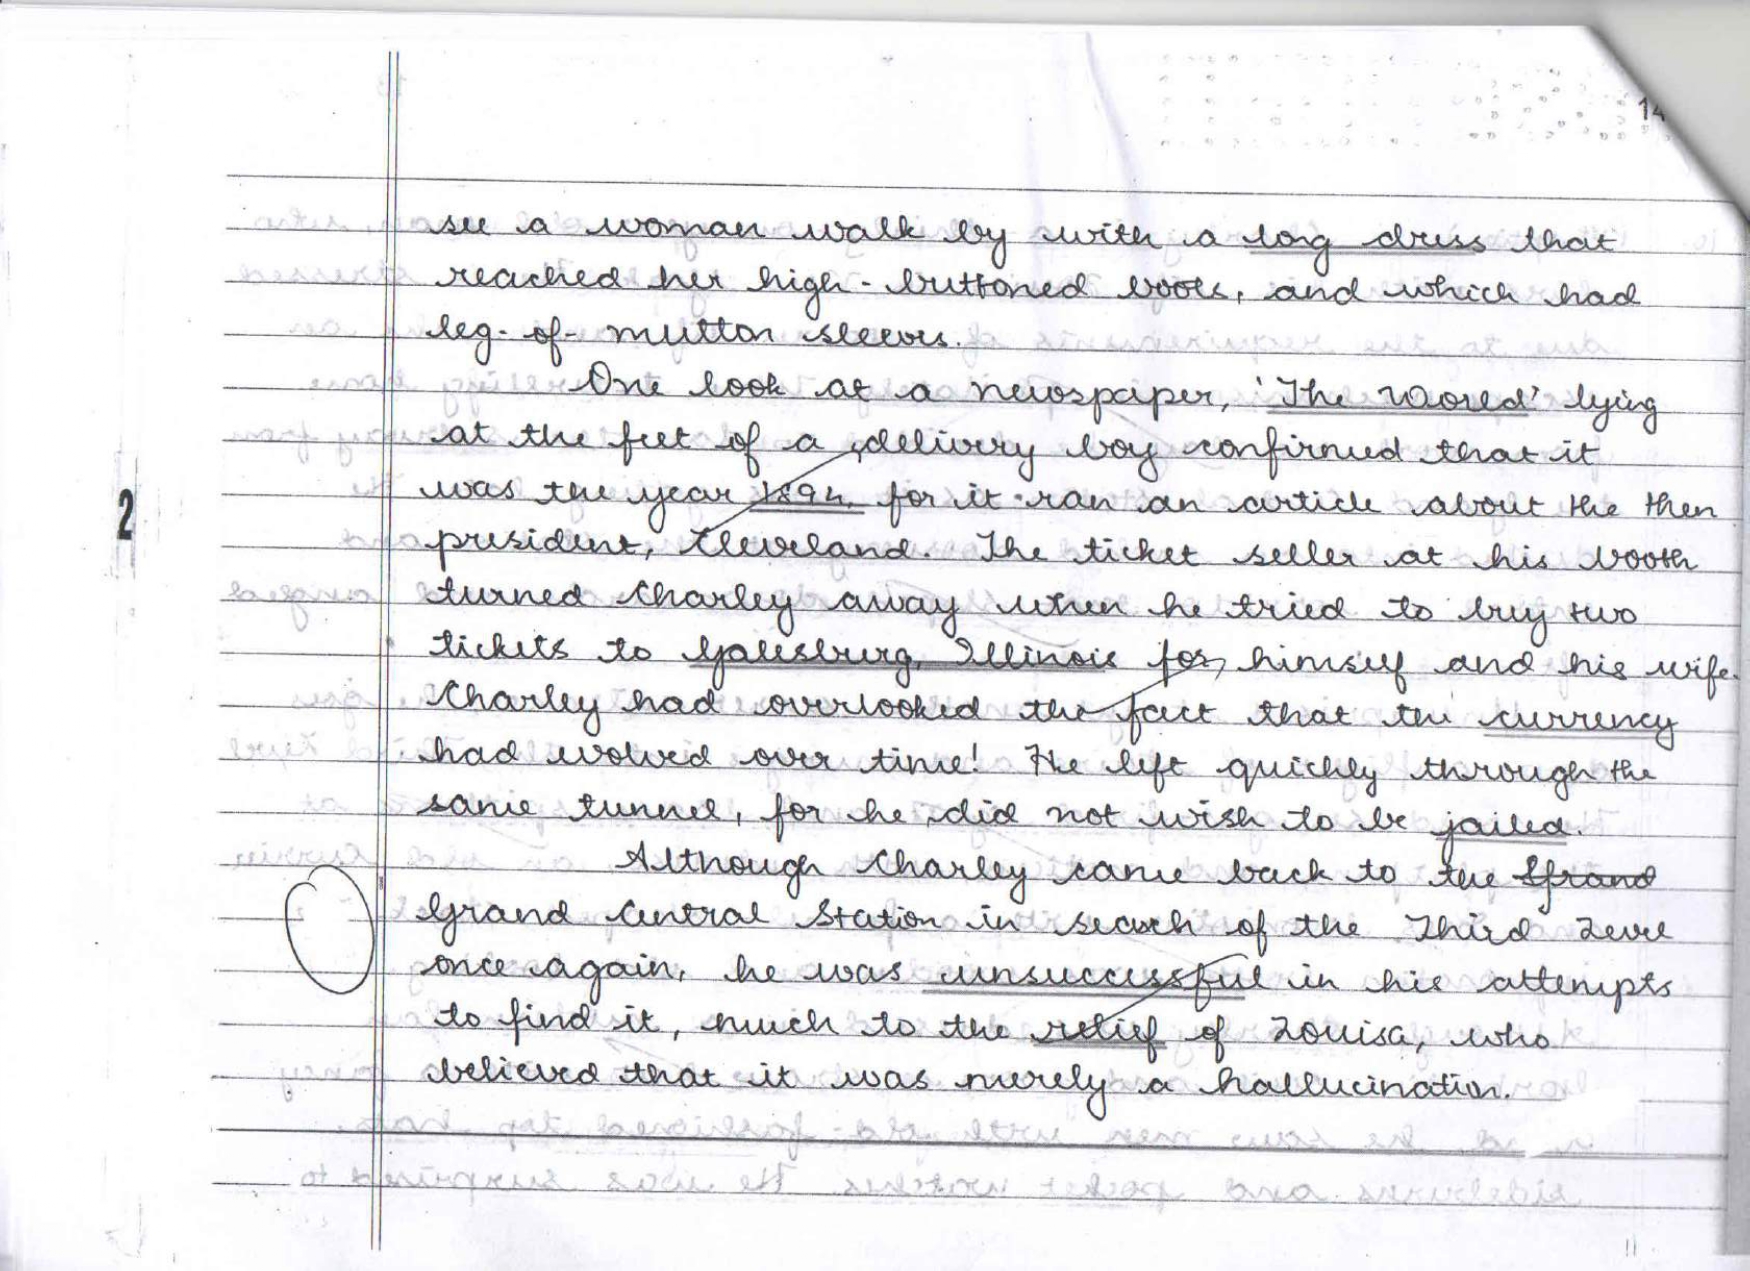 14
see a woman walk by with a long dress that
reached her high-buttoned boots, and which had
leg-of-mutton sleeves.
One look at a newspaper, 'The World' lying
at the feet of a delivery boy confirmed that it
was the year 1894, for it ran an article about the then
president, Cleveland. The ticket seller at his booth
turned Charley away when he tried to buy two
tickets to Galesburg, Illinois for himself and his wife.
Charley had overlooked the fact that the currency
had evolved over time! He left quickly through the
same tunnel, for he did not wish to be jailed.
Although Charley came back to the Grand
Grand Central Station in search of the Third Level
once again, he was unsuccessful in his attempts
to find it, much to the relief of Louisa, who
believed that it was merely a hallucination.
2